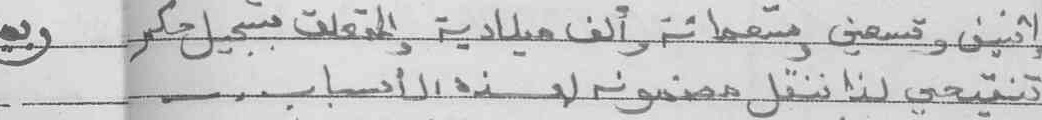 إثنين وتسعين وتسعمائة وألف ميلادية والمتعلق بتسجيل حكم
تنقيحي لذا ننقل مضمونه لهذه الأسباب